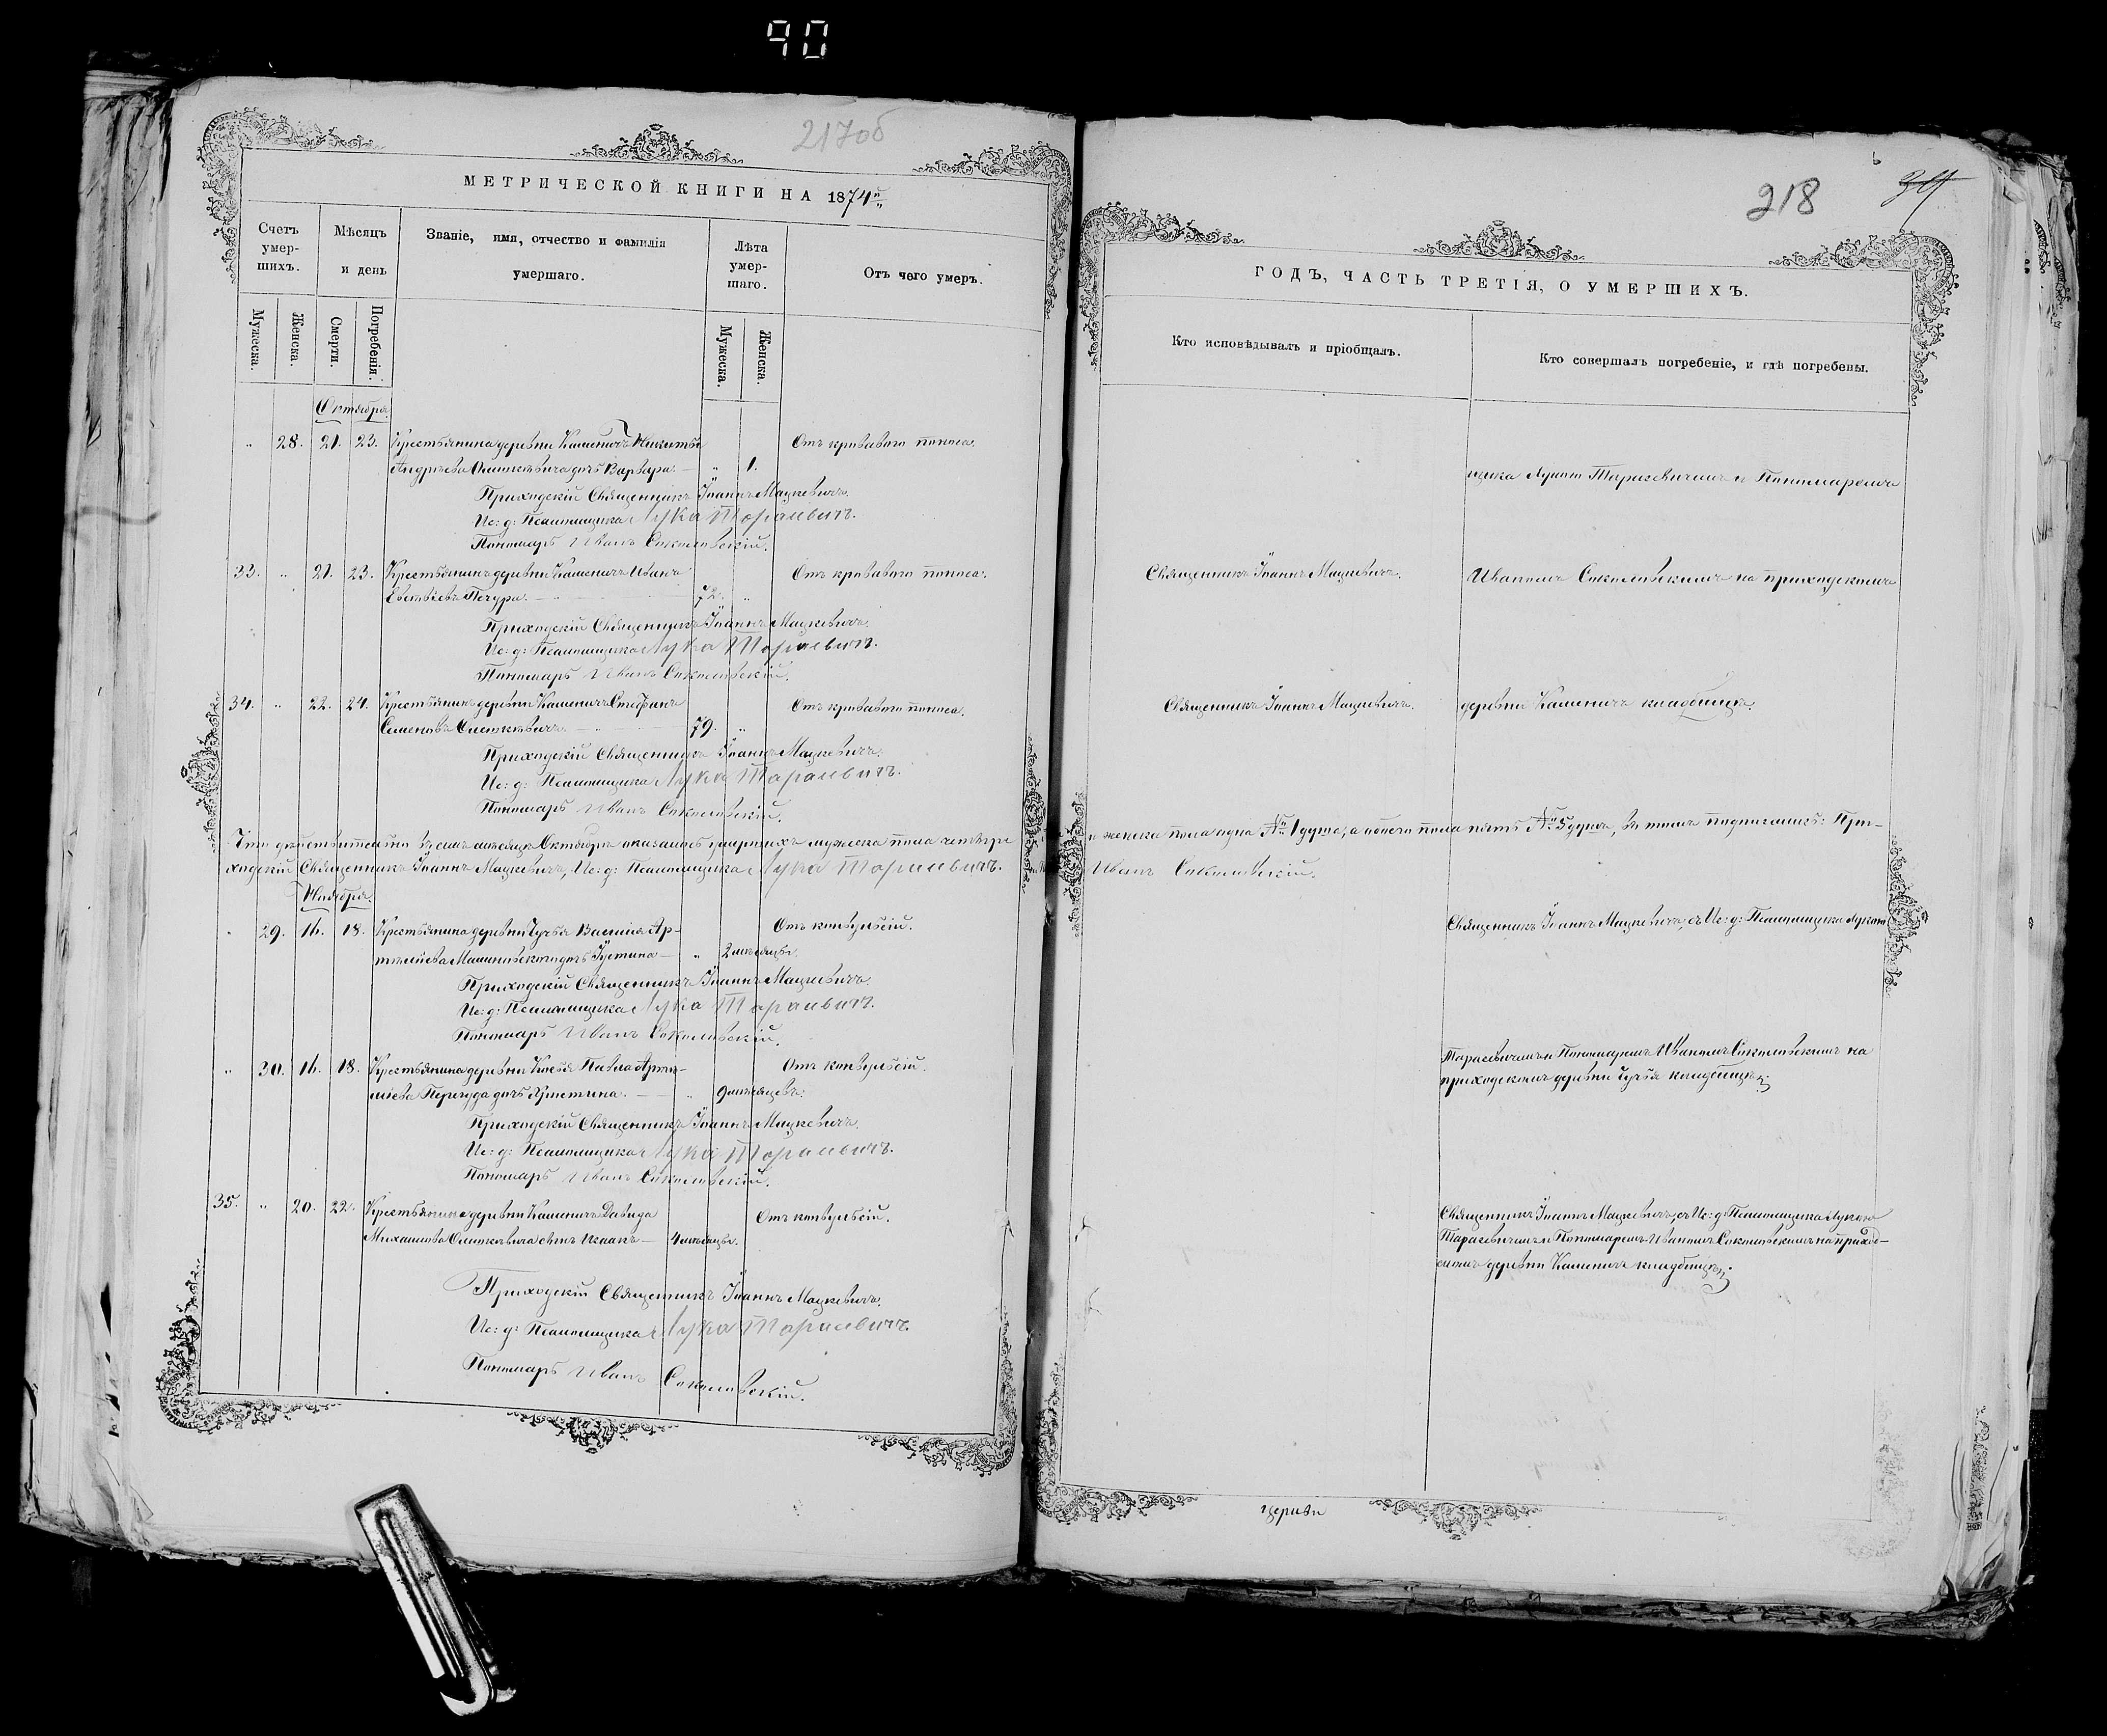 90
217об
МЕТРИЧЕСКОЙ КНИГИ НА 1874й
Счетъ умер-шихъ.
Мѣсяцъ и день
Званіе, имя, отчество и фамилія умершаго.
Лѣта умер-шаго.
Отъ чего умеръ.
Мужеска.
Женска.
Смерти.
Погребенія.
Мужеска.
Женска.
Октября
„ 28. 21. 23. Крестьянина деревни Каменичъ Никиты Отъ кроваваго поноса.
Андреева дочь Варвара. — „ 1.
Приходскій Священникъ Іоаннъ Мацкевичъ.
Ис: д: Псаломщика Лука Тарасевичъ.
Пономарь Иванъ Соколовскій.
33. „ 21. 23. Крестьянинъ деревни Каменичъ Иванъ Отъ кроваваго поноса.
Евстѣевъ Печура. — 72. „
Приходскій Священникъ Іоаннъ Мацкевичъ.
Ис: д: Псаломщика Лука Тарасевичъ.
Пономарь Иванъ Соколовскій.
34. „ 22. 24. Крестьянинъ деревни Каменичъ Стефанъ Отъ кроваваго поноса.
Семеновъ — 79. „
Приходскій Священникъ Іоаннъ Мацкевичъ.
Ис: д: Псаломщика Лука Тарасевичъ.
Пономарь Иванъ Соколовскій.
Что дѣйствительно въ семъ мѣсяцѣ Октябрѣ оказалось умершихъ мужеска пола четыре
ходскій Священникъ Іоаннъ Мацкевичъ, Ис: д: Псаломщика Лука Тарасевичъ.
Ноября
„ 29. 16. 18. Крестьянина деревни Василія Ар- Отъ конвульсій.
темьева дочь Іустина — „ 2 мѣсяцевъ.
Приходскій Священникъ Іоаннъ Мацкевичъ.
Ис: д: Псаломщика Лука Тарасевичъ.
Пономарь Иванъ Соколовскій.
„ 30. 16. 18. Крестьянина деревни Павла Артемь- Отъ конвульсій.
дочь Христина. — „ 9 мѣсяцевъ.
Приходскій Священникъ Іоаннъ Мацкевичъ.
Ис: д: Псаломщика Лука Тарасевичъ.
Пономарь Иванъ Соколовскій.
35. „ 20. 22. Крестьянина деревни Каменичъ Давида Отъ конвульсій.
Михайлова сынъ Исаакъ — 4 мѣсяцевъ.
Приходскій Священникъ Іоаннъ Мацкевичъ.
Ис: д: Псаломщика Лука Тарасевичъ.
Пономарь Иванъ Соколовскій.
218
ГОДЪ, ЧАСТЬ ТРЕТІЯ, О УМЕРШИХЪ.
Кто исповѣдывалъ и пріобщалъ.
Кто совершалъ погребеніе, и гдѣ погребены.
щика Лукою Тарасевичемъ и Пономаремъ
Священникъ Іоаннъ Мацкевичъ. Иваномъ Соколовскимъ на приходскомъ
Священникъ Іоаннъ Мацкевичъ. деревни Каменичъ кладбищѣ.
и женска пола одна № 1 душа, а обоего пола пять № 5 душъ, въ томъ подписались: При-
Иванъ Соколовскій.
Священникъ Іоаннъ Мацкевичъ, съ Ис: д: Псаломщика Лукою
Тарасевичемъ и Пономаремъ Иваномъ Соколовскимъ на
приходскомъ деревни кладбищѣ.
Священникъ Іоаннъ Мацкевичъ, съ Ис: д: Псаломщика Лукою
Тарасевичемъ и Пономаремъ Иваномъ Соколовскимъ на приход-
скомъ деревни Каменичъ кладбищѣ.
церкви